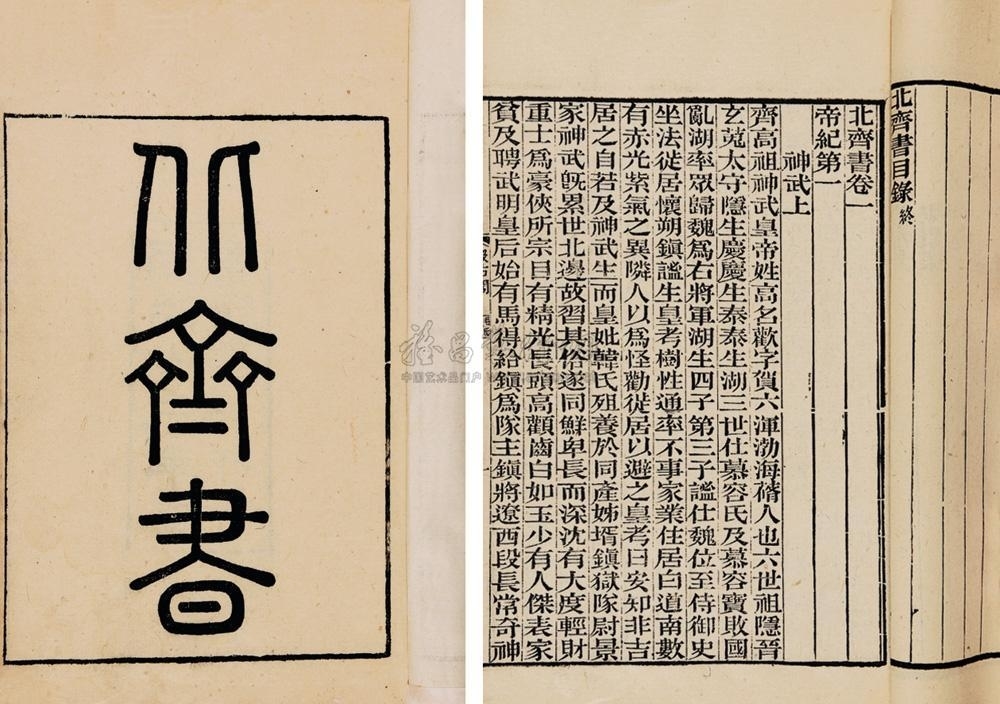 北齊書
北齊書目錄終
北齊書卷一
帝紀第一
神武上
齊高祖神武皇帝姓高名歡字賀六渾渤海蓨人也六世祖隱晉
玄菟太守隱生慶慶生泰泰生湖三世仕慕容氏及慕容寶敗國
亂湖率眾歸魏爲右將軍湖生四子第三子謐仕魏位至侍御史
坐法徙居懷朔鎮謐生皇考樹性通率不事家業住居白道南數
有赤光紫氣之異隣人以爲怪勸徙居以避之皇考曰安知非吉
居之自若及神武生而皇妣韓氏殂養於同產姊壻鎮獄隊尉景
家神武旣累世北邊故習其俗遂同鮮卑長而深沈有大度輕財
重士爲豪俠所宗目有精光長頭高顴齒白如玉少有人傑表家
貧及聘武明皇后始有馬得給鎮爲隊主鎮將遼西段長常奇神